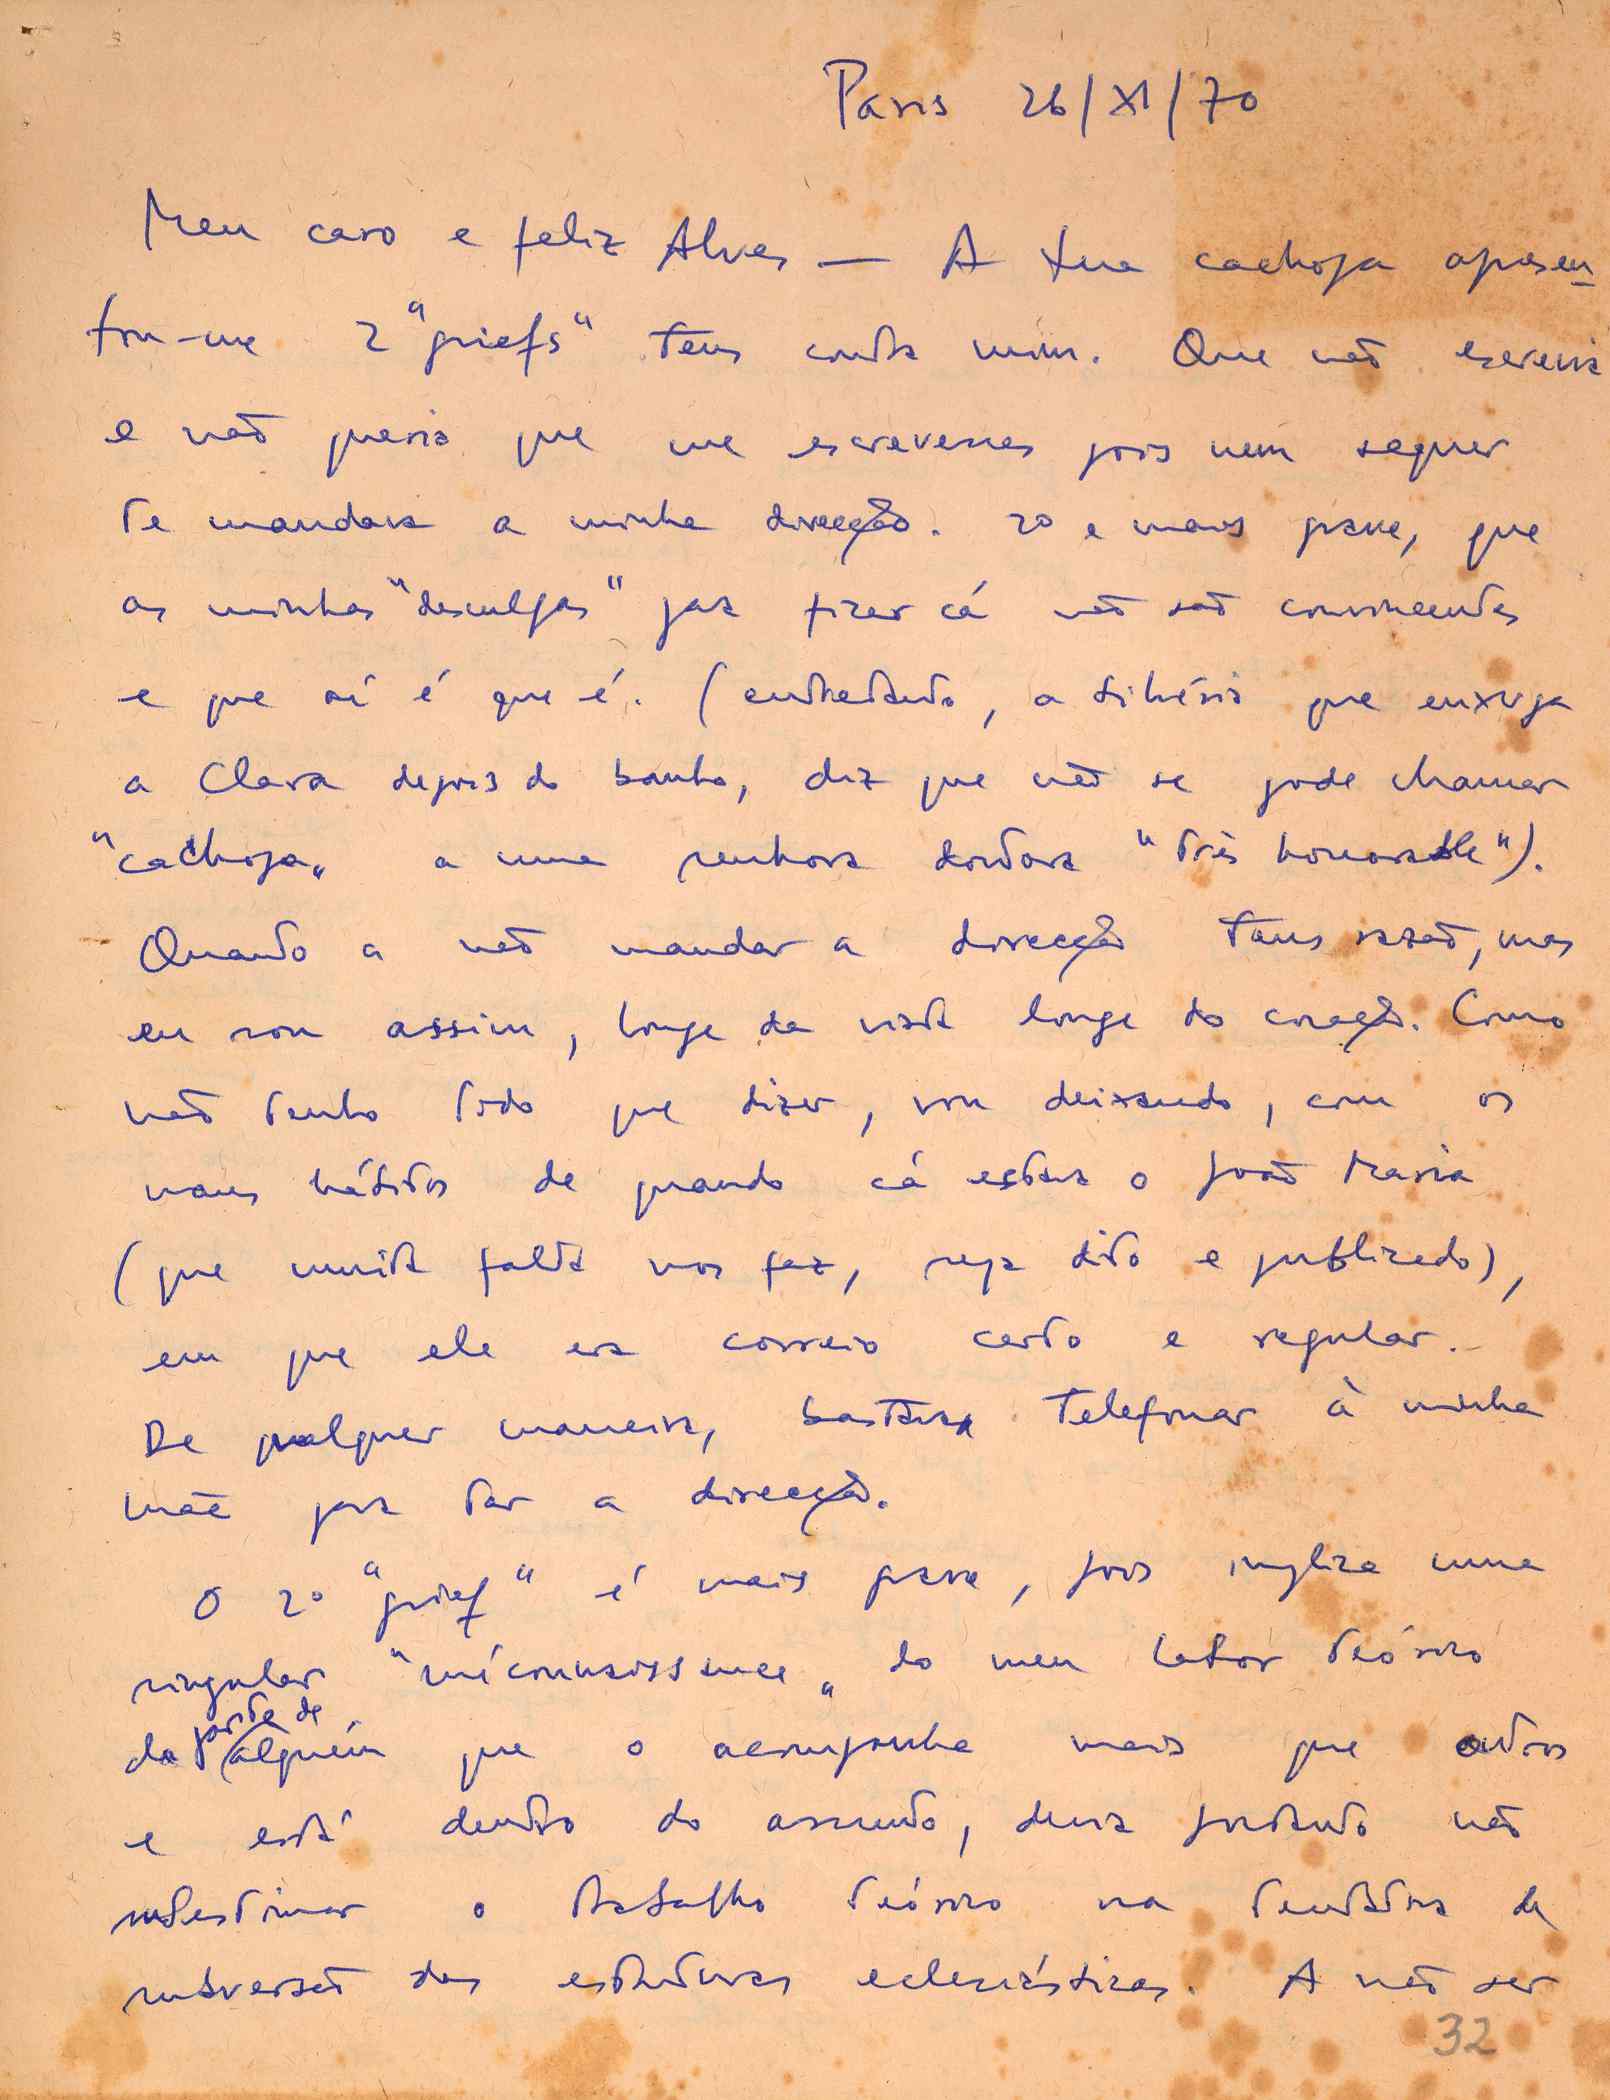 Paris 26/XI/70
Meu caro e feliz Alves — A tua cachopa apresen-
tou-me 2 "griefs" teus contra mim. Que não escrevia
e não queria que me escrevesses pois nem sequer
te mandara a minha direcção. 2º e mais grave, que
as minhas "desculpas" para ficar cá não são convincentes
e que aí é que é. (entretanto, a Libéria que enxuga
a Clara depois do banho, diz que não se pode chamar
"cachopa" a uma senhora doutora "très honorable").
Quando a não mandar a direcção tens razão, mas
eu sou assim, longe da vista longe do coração. Como
não tenho todo que dizer, vou deixando, com os
maus hábitos de quando cá estava o João Maria
(que muita falta nos faz, seja dito e publicado),
em que ele era correio certo e regular.
De qualquer maneira, bastava telefonar à minha
mãe para dar a direcção.
O 2º "grief" é mais grave, pois implica uma
singular "méconnaissance" do meu labor teórico
da parte de alguém que o acompanha mais que outros
e está dentro do assunto, devia portanto não
subestimar o trabalho teórico na tentativa de
subversão das estruturas eclesiásticas. A não ser
32